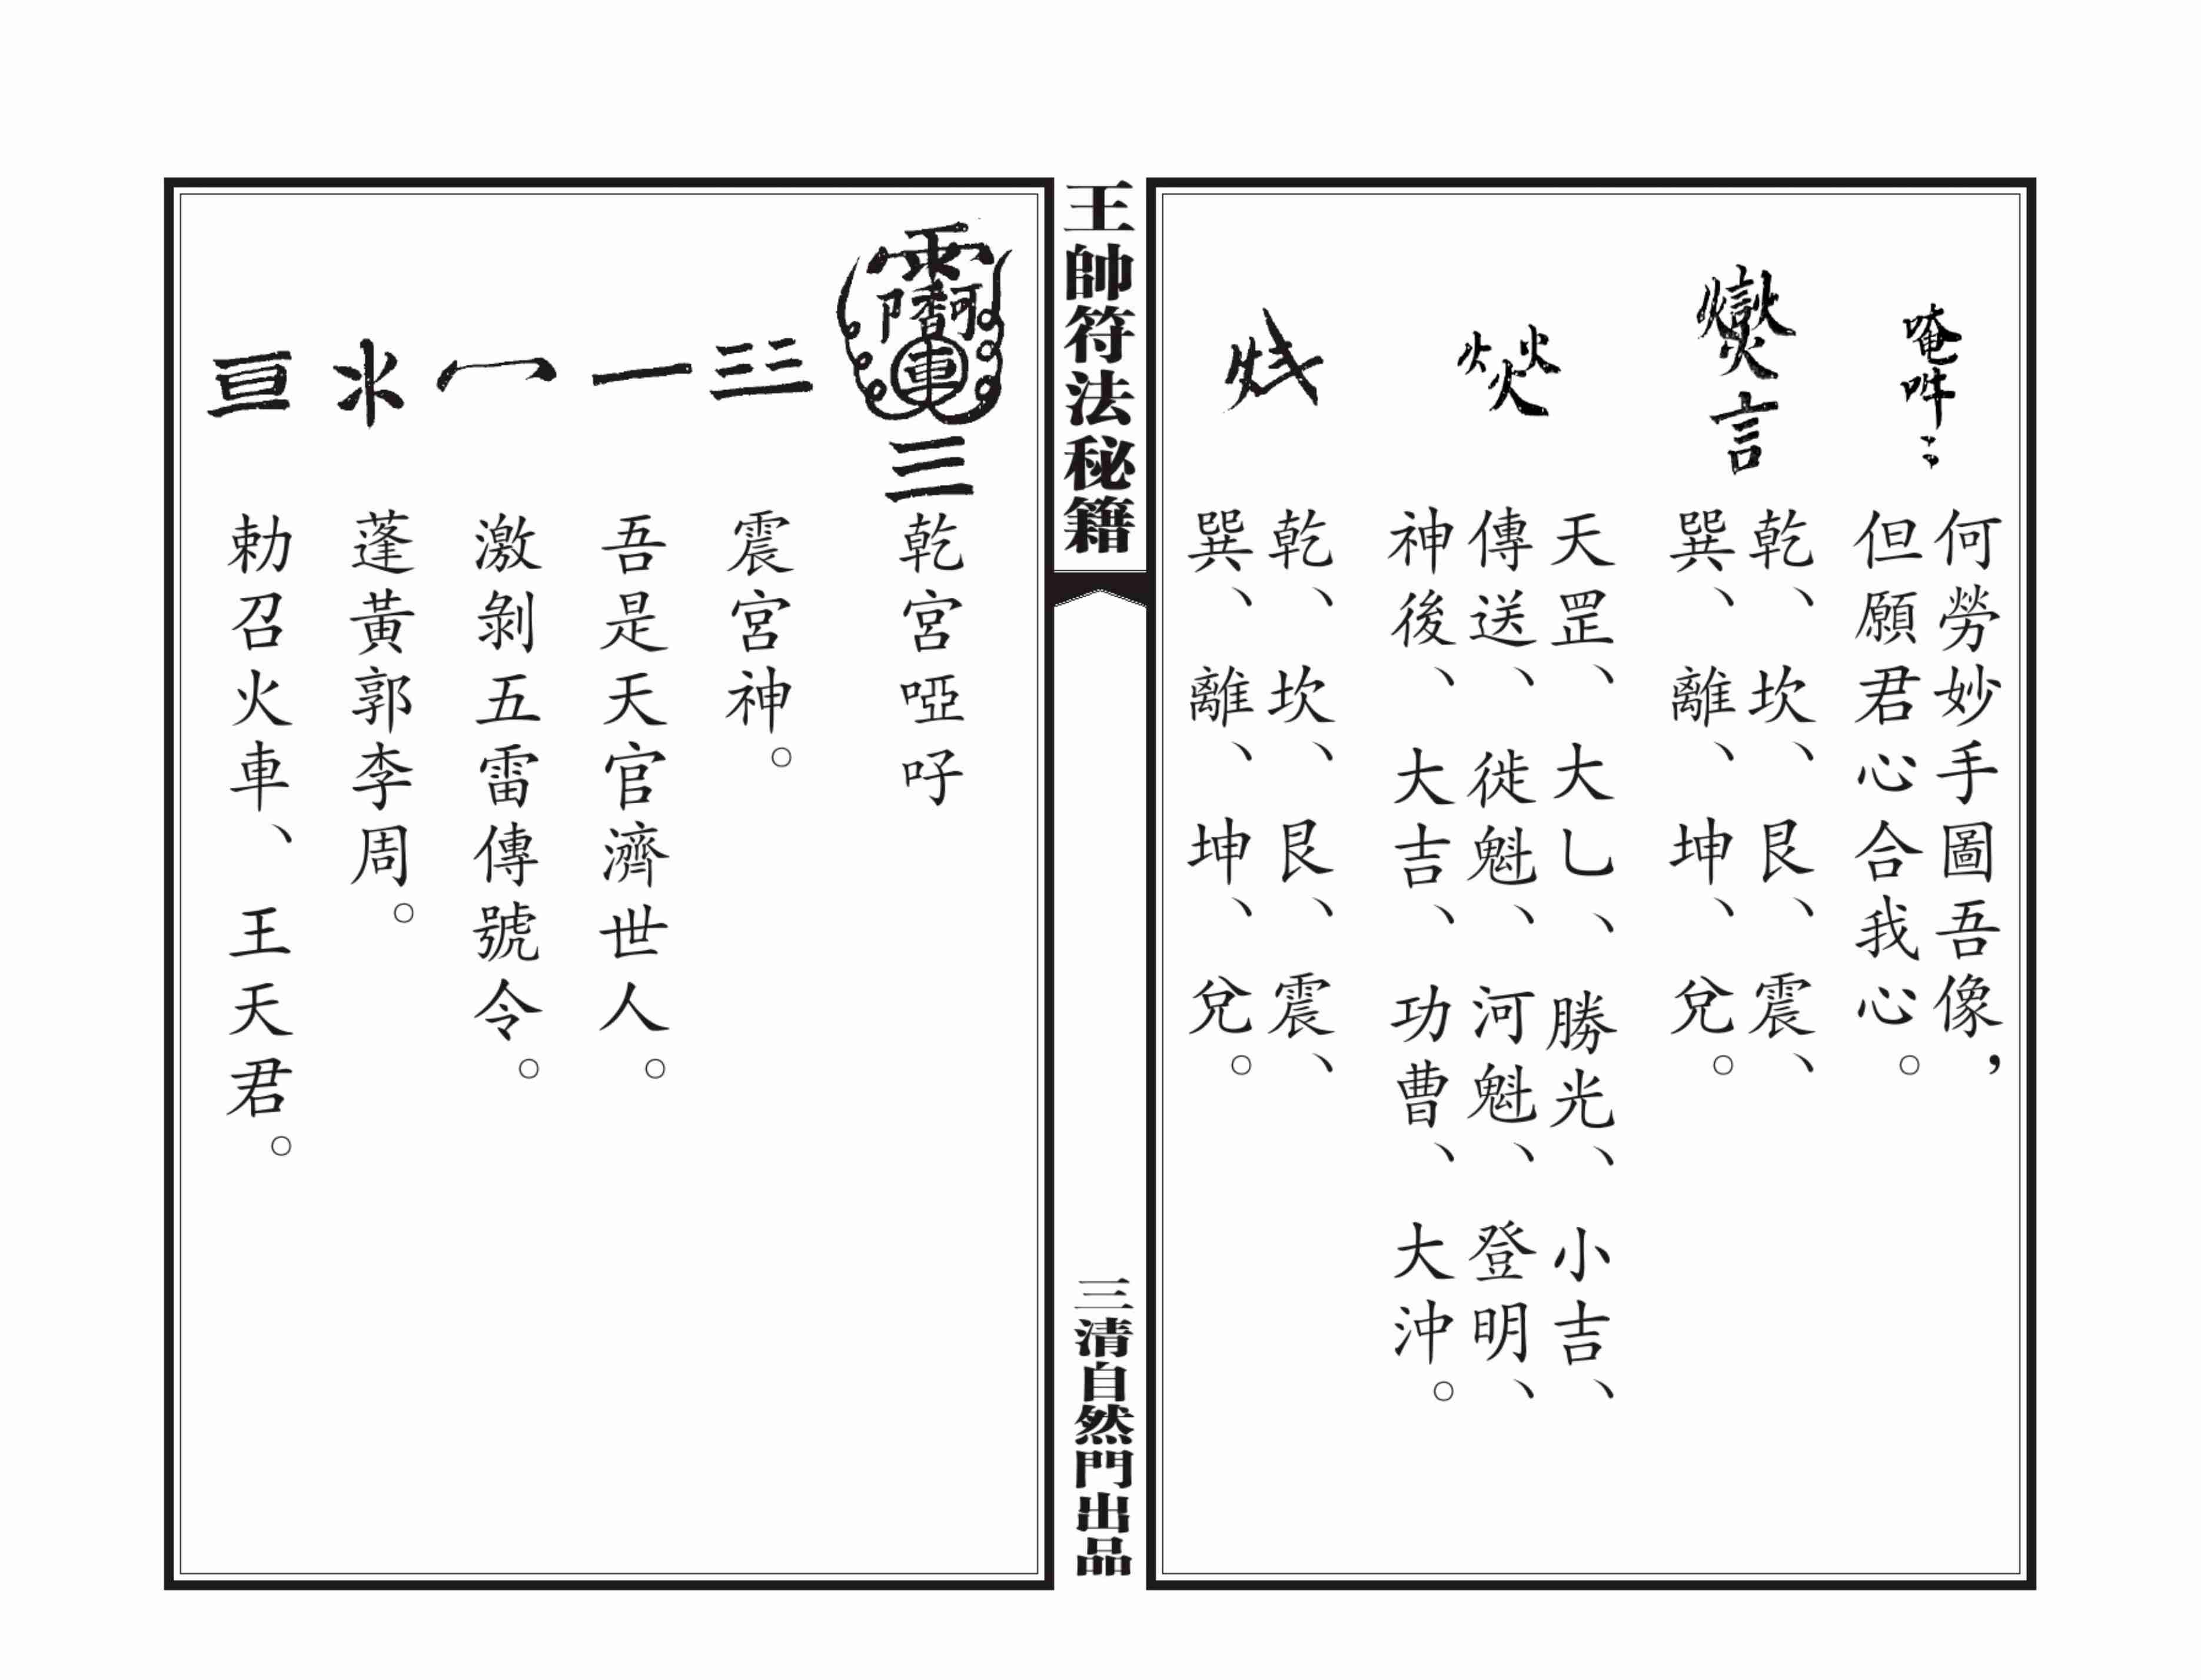 唵吽
何勞妙手圖吾像，
但願君心合我心。
言
乾、坎、艮、震、
巽、離、坤、兌。
天罡、大乚、勝光、小吉、
傳送、徒魁、河魁、登明、
神後、大吉、功曹、大沖。
乾、坎、艮、震、
巽、離、坤、兌。
王帥符法秘籍
三清自然門出品
三
乾宮啞吇
震宮神。
一
吾是天官濟世人。
激剝五雷傳號令。
蓬黃郭李周。
勅召火車、王天君。